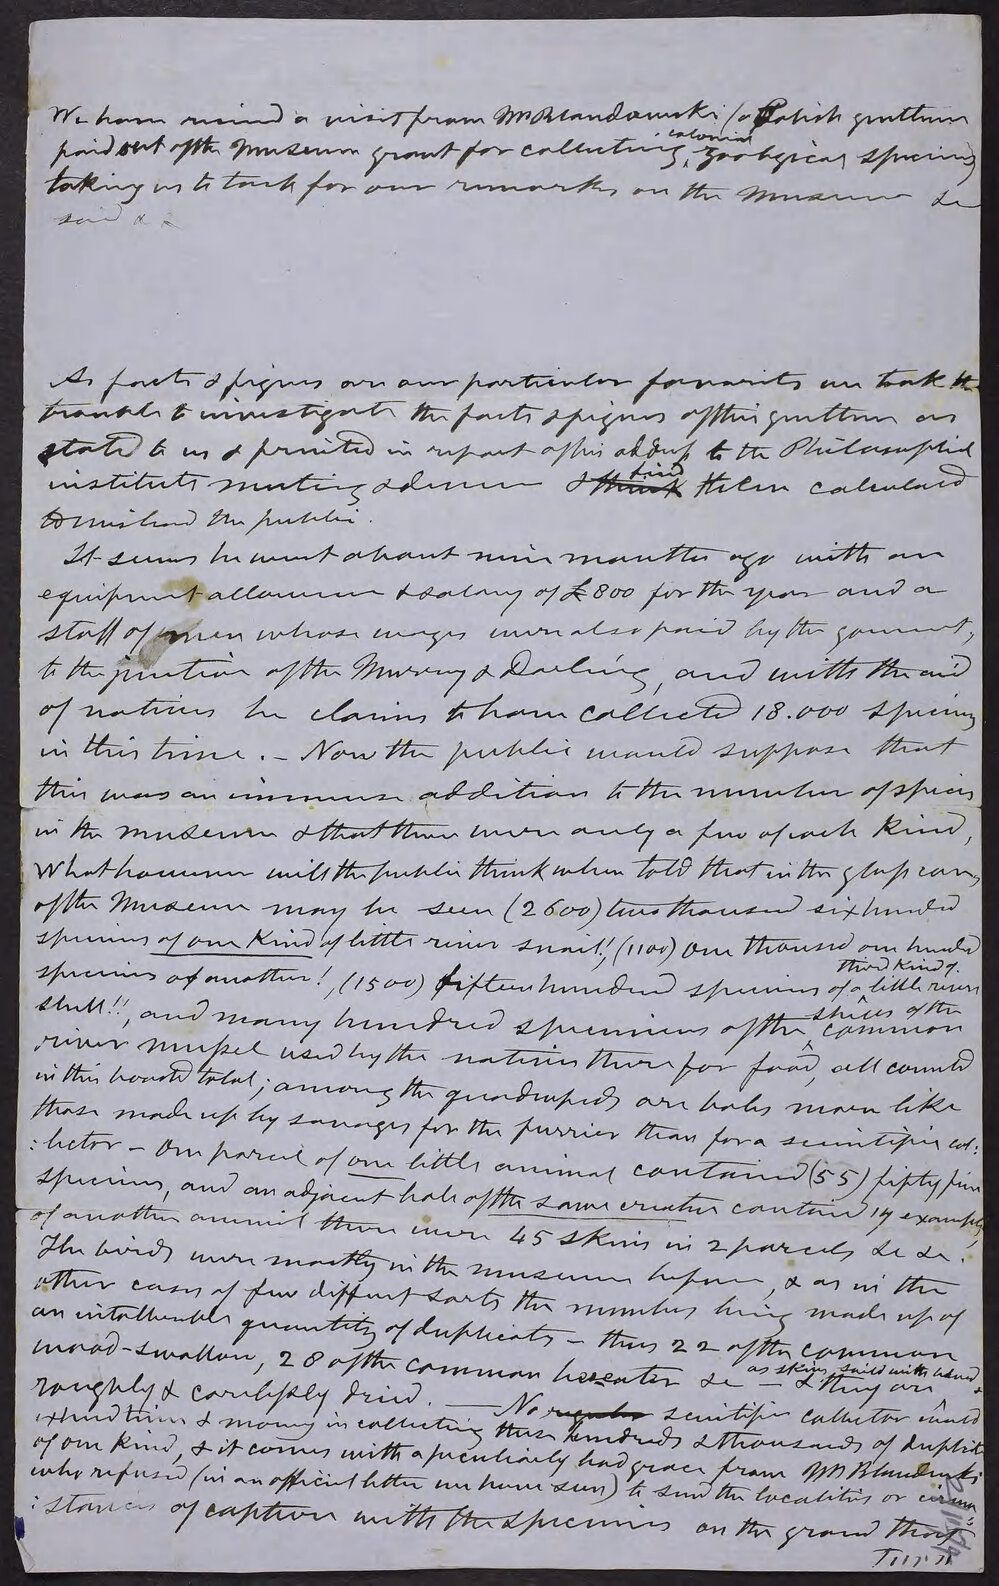 We have received a visit from Mr Blandowski (a Polish gentleman
paid out of the Museum grant for collecting colonial zoological specimens)
taking us to task for our remarks on the Museum &c
said &c
As facts & figures are our particular favorites we took the
trouble to investigate the facts & figures of this gentleman as
stated to us & printed in report of his address to the Philosophical
institute meeting & find them calculated
to mislead the public.
It seems he went about nine months ago with an
equipment allowance & salary of £800 for the year and a
staff of men whose wages were also paid by the government,
to the junction of the Murray & Darling, and with the aid
of natives he claims to have collected 18.000 specimens
in this time. – Now the public would suppose that
this was an immense addition to the number of species
in the museum & that there were only a few of each kind,
What however will the public think when told that in the glass cases
of the Museum may be seen (2600) two thousand six hundred
specimens of one kind of little river snail!, (1100) one thousand one hundred
specimens of another!, (1500) fifteen hundred specimens of a third kind of little river
shell!!, and many hundred specimens of the shells of the common
river mussel used by the natives there for food, all counted
in this boasted total; among the quadrupeds are bales more like
those made up by savages for the furrier than for a scientific col:
:lector – One parcel of one little animal contained (55) fifty five
specimens, and an adjacent bale of the same creature contained 14 examples,
of another animal there were 45 skins in 2 parcels &c &c.
The birds were mostly in the museum before, & as in the
other cases of few different sorts the numbers being made up of
an intolerable quantity of duplicates – thus 22 of the common
wood-swallow, 28 of the common beeeater &c – & they are as skins
roughly & carelessly dried. — No scientific collector would
expend time & money in collecting these hundreds & thousands of duplicates
of one kind, & it comes with a peculiarly bad grace from Mr Blandowski
who refused (in an official letter we have seen) to send the localities or circum:
:stances of capture with the specimens on the ground that
Turn